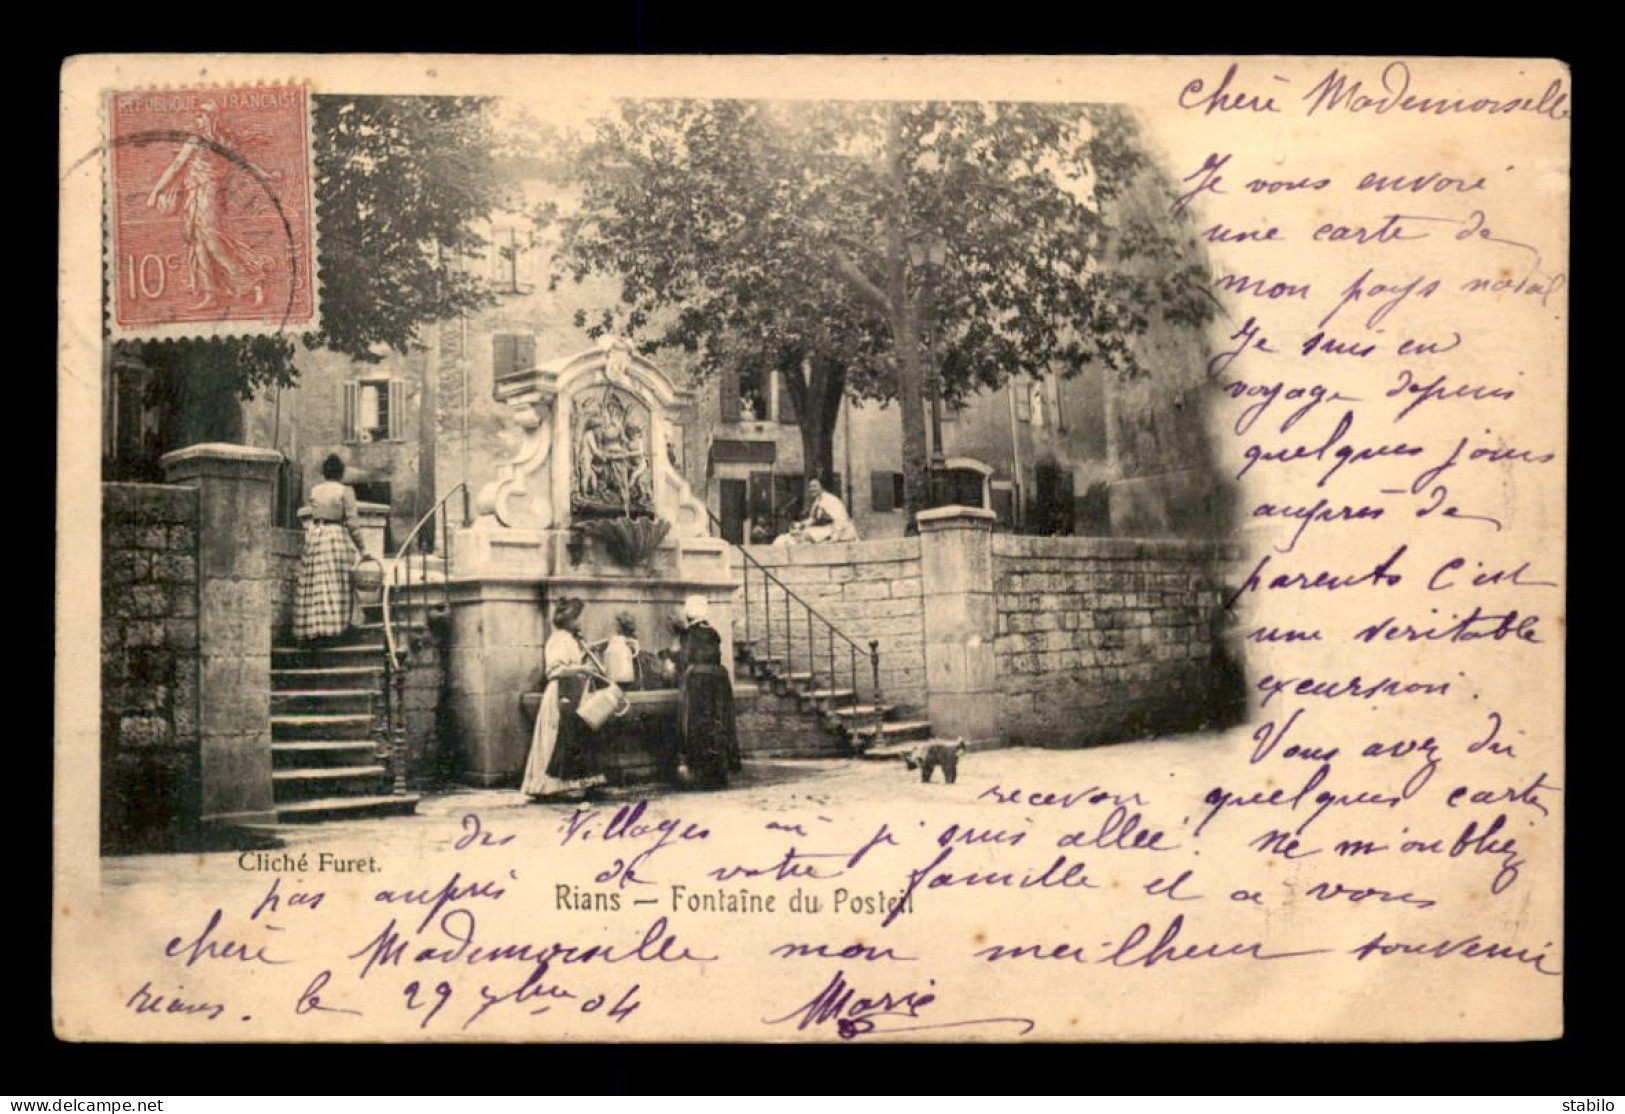 REPUBLIQUE FRANÇAISE
10c
Chère Mademoiselle
Je vous envoie
une carte de
mon pays natal
Je suis en
voyage depuis
quelques jours
auprès de
parents c'est
une veritable
excursion.
Vous avez du
recevoir quelques cartes
des Villages où j'suis allée. Ne m'oubliez
pas auprès de votre famille et a vous
chère Mademoiselle mon meilheur souvenir
rians. le 29 7bre 04 Marie
Cliché Furet.
Rians — Fontaîne du Posteil
delcampe.net
stabilo